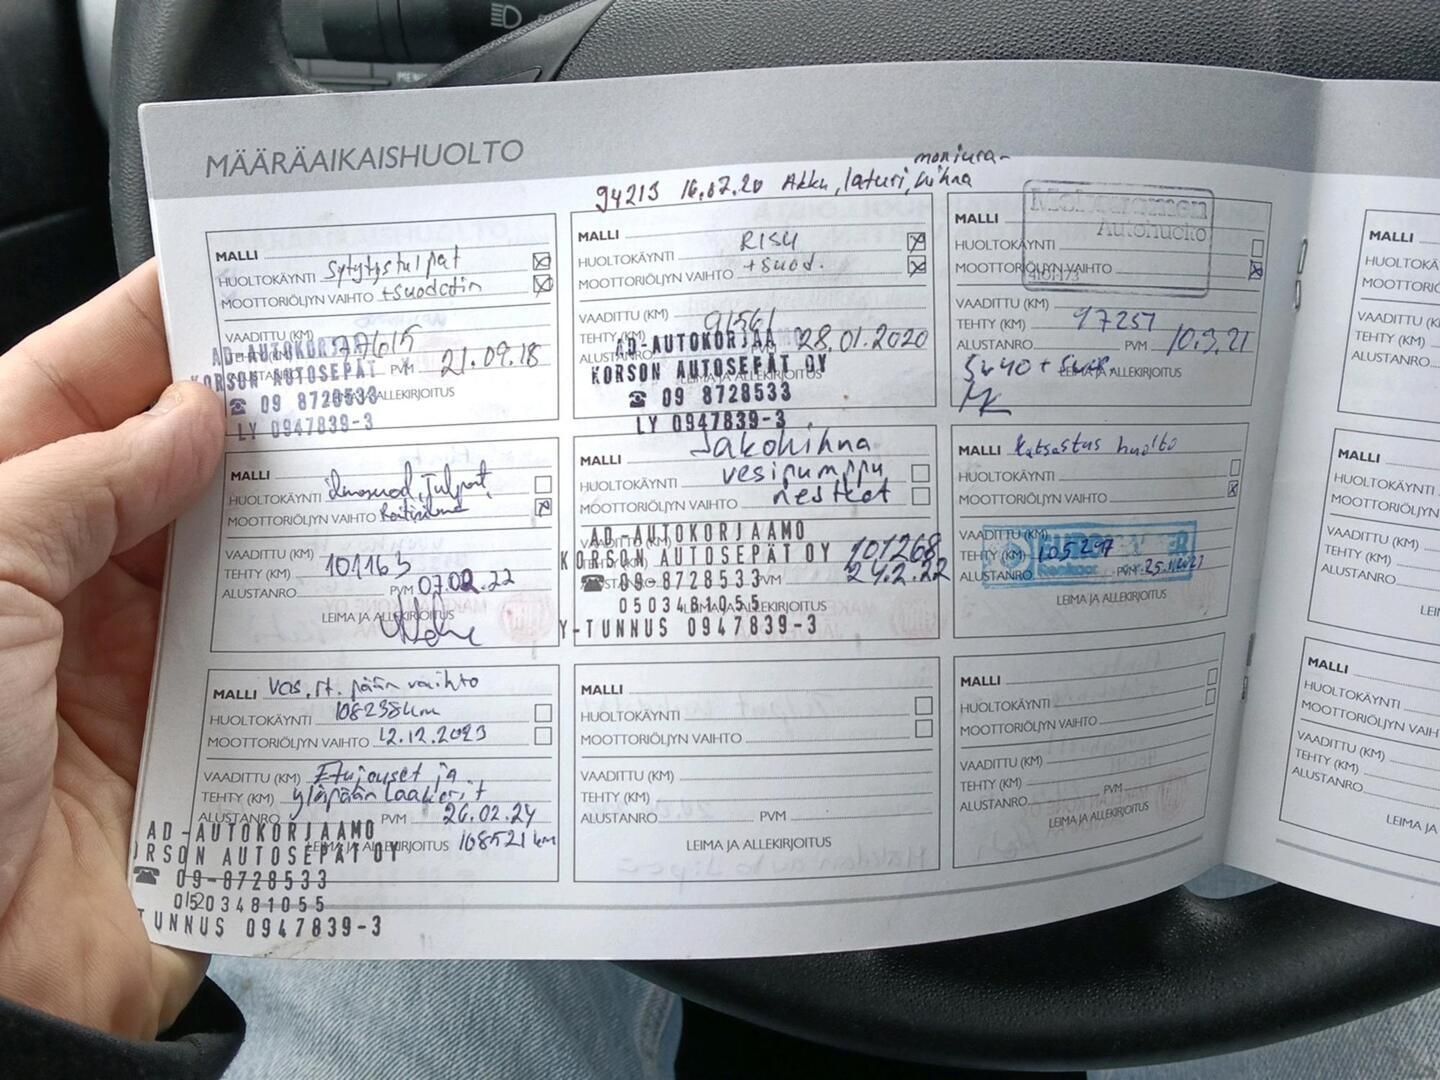 MÄÄRÄAIKAISHUOLTO
moniura-
94213 16.07.20 Akku, laturi, hihna
MALLI
HUOLTOKÄYNTI Sytytystulpat
MOOTTORIÖLJYN VAIHTO +suodatin
VAADITTU (KM)
77615
PVM 21.09.18
AD-AUTOKORJAA
KORSON AUTOSEPÄT
☎ 09 8728533
LY 0947839-3
MALLI
HUOLTOKÄYNTI RISU
MOOTTORIÖLJYN VAIHTO +suod.
VAADITTU (KM)
TEHTY (KM) 91561
ALUSTANRO PVM 28.01.2020
AD-AUTOKORJAAMO
KORSON AUTOSEPÄT OY
LEIMA JA ALLEKIRJOITUS
☎ 09 8728533
LY 0947839-3
MALLI
HUOLTOKÄYNTI
MOOTTORIÖLJYN VAIHTO
Autohuolto
VAADITTU (KM)
TEHTY (KM) 97257
ALUSTANRO PVM 10.3.21
5W40 +
LEIMA JA ALLEKIRJOITUS
MALLI
HUOLTOKÄYNTI ilmasuod, tulpat,
MOOTTORIÖLJYN VAIHTO Raitisilma
VAADITTU (KM)
TEHTY (KM) 101163
ALUSTANRO PVM 07.02.22
LEIMA JA ALLEKIRJOITUS
MALLI Jakohihna
HUOLTOKÄYNTI vesipumppu
MOOTTORIÖLJYN VAIHTO nesteet
AD-AUTOKORJAAMO
VAADITTU (KM)
KORSON AUTOSEPÄT OY 101268
☎ 09-8728533 PVM 24.2.22
0503481055
LEIMA JA ALLEKIRJOITUS
Y-TUNNUS 0947839-3
MALLI Katsastus huolto
HUOLTOKÄYNTI
MOOTTORIÖLJYN VAIHTO
VAADITTU (KM)
TEHTY (KM) 105297
ALUSTANRO PVM
LEIMA JA ALLEKIRJOITUS
MALLI Vas. rt. pään vaihto
HUOLTOKÄYNTI 108238km
MOOTTORIÖLJYN VAIHTO 12.12.2023
VAADITTU (KM) Etujouset ja
TEHTY (KM) yläpään laakerit
ALUSTANRO PVM 26.02.24
LEIMA JA ALLEKIRJOITUS 108521 km
AD-AUTOKORJAAMO
ORSON AUTOSEPÄT OY
☎ 09-8728533
0503481055
TUNNUS 0947839-3
MALLI
HUOLTOKÄYNTI
MOOTTORIÖLJYN VAIHTO
VAADITTU (KM)
TEHTY (KM)
ALUSTANRO PVM
LEIMA JA ALLEKIRJOITUS
MALLI
HUOLTOKÄYNTI
MOOTTORIÖLJYN VAIHTO
VAADITTU (KM)
TEHTY (KM)
ALUSTANRO PVM
LEIMA JA ALLEKIRJOITUS
MALLI
HUOLTOKÄ
MOOTTORIÖL
VAADITTU (K
TEHTY (KM)
ALUSTANRO
MALLI
HUOLTOKÄY
MOOTTORIÖLJ
VAADITTU (KM)
TEHTY (KM)
ALUSTANRO
LEIM
MALLI
HUOLTOKÄYNT
MOOTTORIÖLJYN
VAADITTU (KM)
TEHTY (KM)
ALUSTANRO
LEIMA